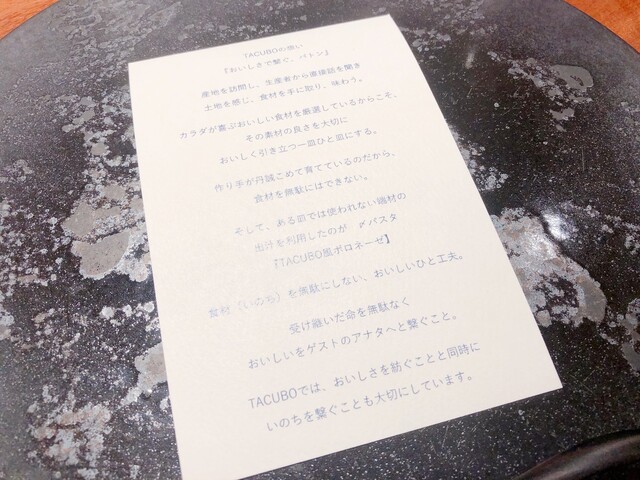 TACUBOの想い
『おいしさで繋ぐ、バトン』
産地を訪問し、生産者から直接話を聞き
土地を感じ、食材を手に取り、味わう。
カラダが喜ぶおいしい食材を厳選しているからこそ、
その素材の良さを大切に
おいしく引き立つ一皿ひと皿にする。
作り手が丹誠こめて育てているのだから、
食材を無駄にはできない。
そして、ある皿では使われない端材の
出汁を利用したのが 〆パスタ
『TACUBO風ボロネーゼ】
食材（いのち）を無駄にしない、おいしいひと工夫。
受け継いだ命を無駄なく
おいしいをゲストのアナタへと繋ぐこと。
TACUBOでは、おいしさを紡ぐことと同時に
いのちを繋ぐことも大切にしています。